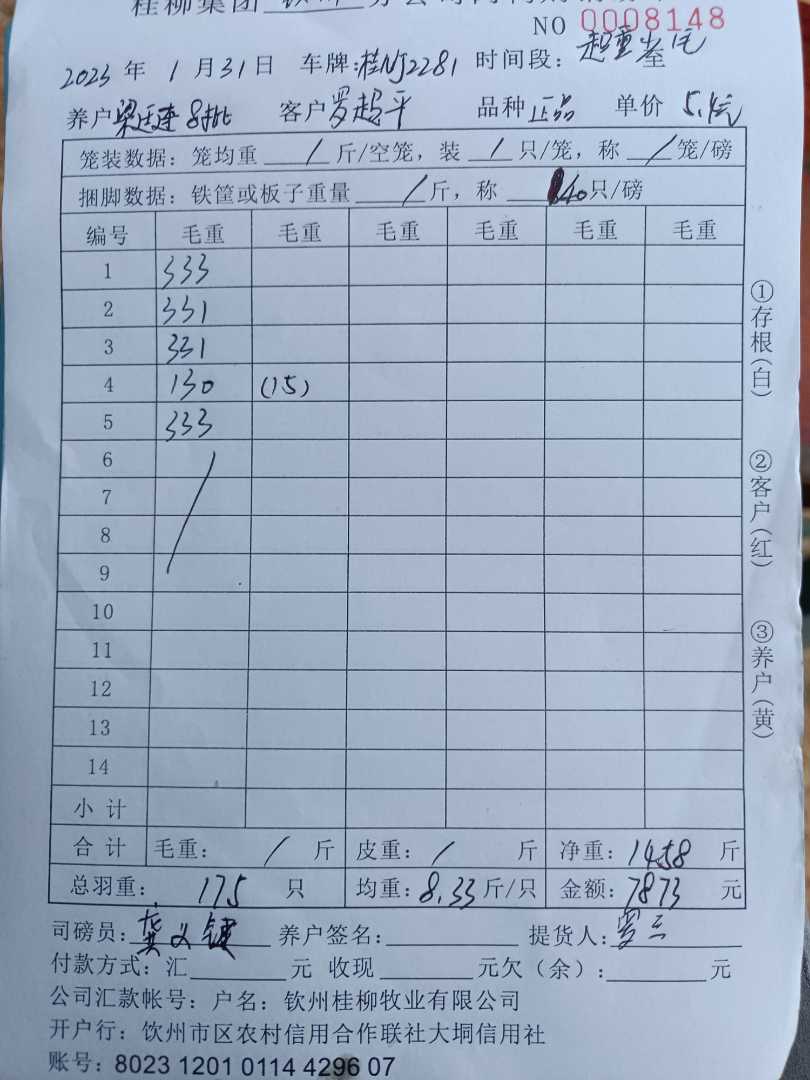 桂柳集团 钦州
NO 0008148
2023 年 1 月 31 日 车牌:桂NJ2281 时间段:
养户 梁廷连 8批 客户 罗超平 品种 正品 单价 5.4元
笼装数据: 笼均重 / 斤/空笼, 装 / 只/笼, 称 / 笼/磅
捆脚数据: 铁筐或板子重量 / 斤, 称 40只/磅
编号 毛重 毛重 毛重 毛重 毛重 毛重
1 333
2 331
3 331
4 130 (15)
5 333
6
7
8
9
10
11
12
13
14
小 计
合 计 毛重: / 斤 皮重: / 斤 净重: 1458 斤
总羽重: 175 只 均重: 8.33 斤/只 金额: 7873 元
司磅员: 龚义键 养户签名: 提货人: 罗三
付款方式: 汇 元 收现 元欠(余): 元
公司汇款帐号: 户名: 钦州桂柳牧业有限公司
开户行: 钦州市区农村信用合作联社大垌信用社
账号: 8023 1201 0114 4296 07
①存根(白)
②客户(红)
③养户(黄)